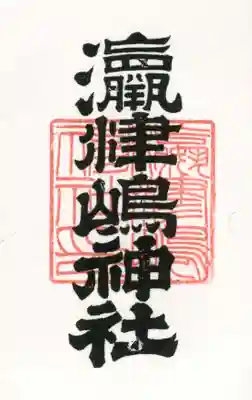 瀛津嶋神社